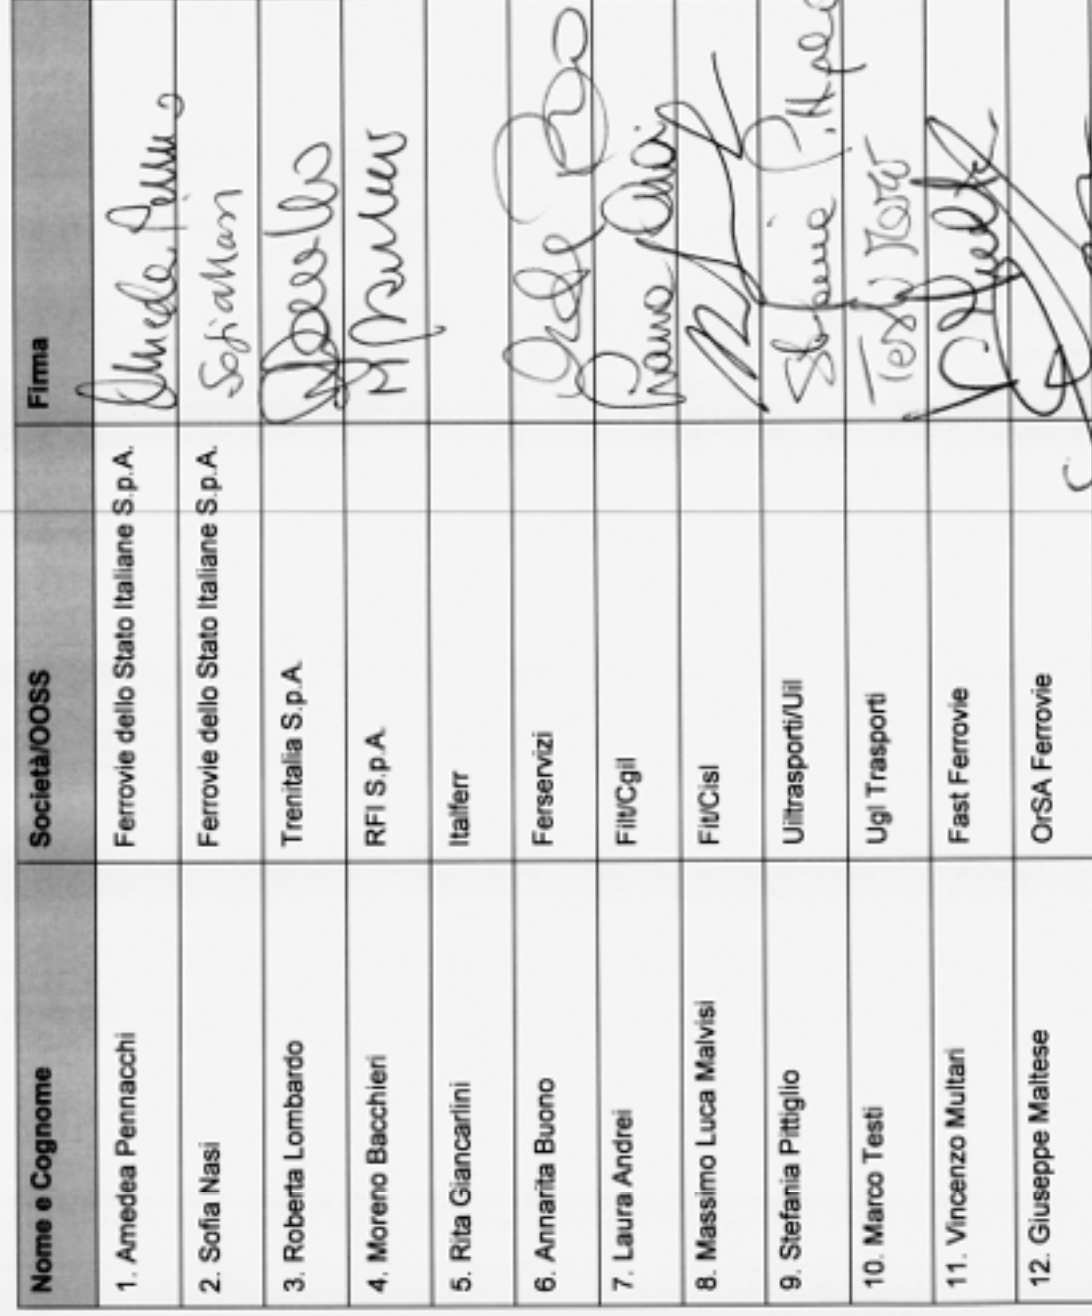 Nome e Cognome Società/OOSS Firma
1. Amedea Pennacchi Ferrovie dello Stato Italiane S.p.A.
2. Sofia Nasi Ferrovie dello Stato Italiane S.p.A. Sofia Nasi
3. Roberta Lombardo Trenitalia S.p.A.
4. Moreno Bacchieri RFI S.p.A.
5. Rita Giancarlini Italferr
6. Annarita Buono Ferservizi
7. Laura Andrei Filt/Cgil
8. Massimo Luca Malvisi Fit/Cisl
9. Stefania Pittiglio Uiltrasporti/Uil
10. Marco Testi Ugl Trasporti
11. Vincenzo Multari Fast Ferrovie
12. Giuseppe Maltese OrSA Ferrovie